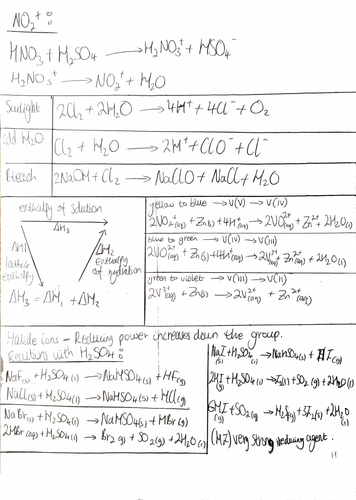 NO₂⁺ :
HNO₃ + H₂SO₄ → H₂NO₃⁺ + HSO₄⁻
H₂NO₃⁺ → NO₂⁺ + H₂O
Sunlight 2Cl₂ + 2H₂O → 4H⁺ + 4Cl⁻ + O₂
cold H₂O Cl₂ + H₂O → 2H⁺ + ClO⁻ + Cl⁻
Bleach 2NaOH + Cl₂ → NaClO + NaCl + H₂O
enthalpy of solution
ΔH₃
ΔH₁
lattice
enthalpy
ΔH₂
enthalpy
of hydration
ΔH₃ = ΔH₁ + ΔH₂
yellow to blue → V(V) → V(IV)
2VO₂⁺(aq) + Zn(s) + 4H⁺(aq) → 2VO²⁺(aq) + Zn²⁺ + 2H₂O(l)
blue to green → V(IV) → V(III)
2VO²⁺(aq) + Zn(s) + 4H⁺(aq) → 2V³⁺(aq) + Zn²⁺(aq) + 2H₂O(l)
green to violet → V(III) → V(II)
2V³⁺(aq) + Zn(s) → 2V²⁺(aq) + Zn²⁺(aq)
Halide ions - Reducing power increases down the group.
Reactions with H₂SO₄ :
NaF(s) + H₂SO₄(l) → NaHSO₄(s) + HF(g)
NaCl(s) + H₂SO₄(l) → NaHSO₄(s) + HCl(g)
NaBr(s) + H₂SO₄(l) → NaHSO₄(s) + HBr(g)
2HBr(g) + H₂SO₄(l) → Br₂(g) + SO₂(g) + 2H₂O(l)
NaI(s) + H₂SO₄(l) → NaHSO₄(s) + HI(g)
2HI(g) + H₂SO₄(l) → I₂(s) + SO₂(g) + 2H₂O(l)
6HI(g) + SO₂(g) → H₂S(g) + 3I₂(s) + 2H₂O(l)
(HI) very strong reducing agent.